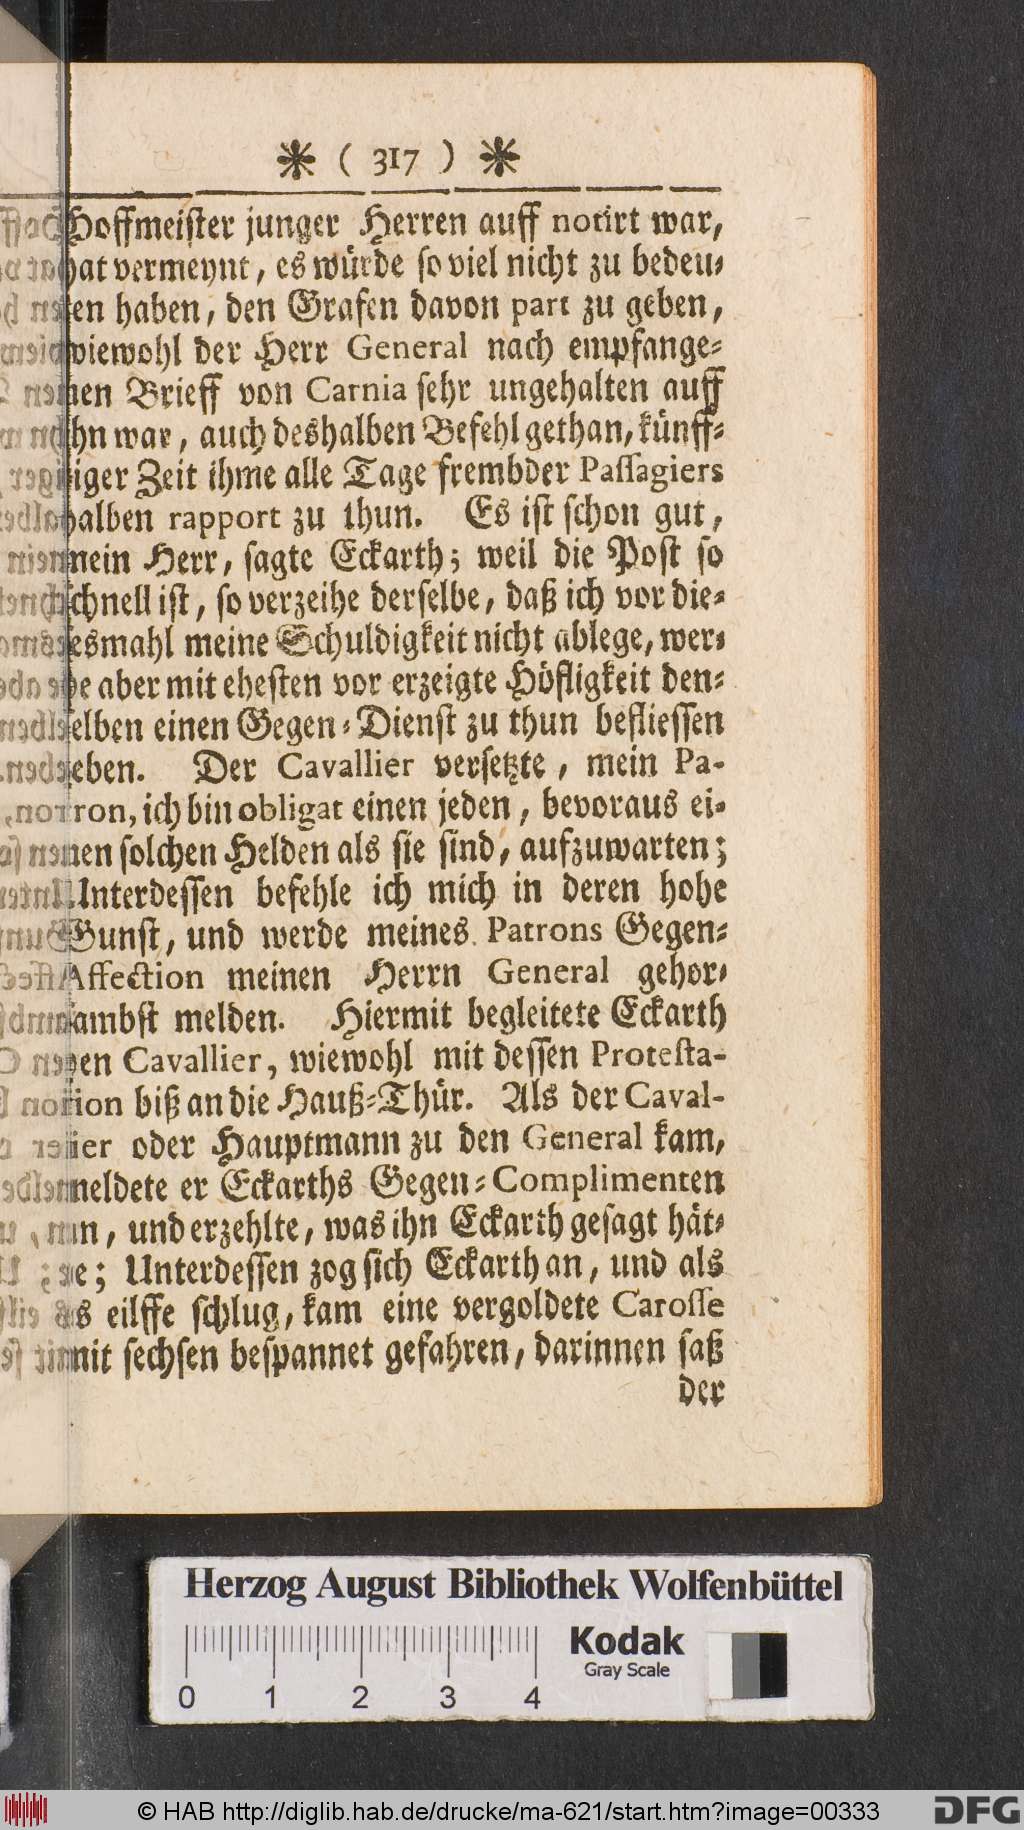 * ( 317 ) *
Hoffmeister junger Herren auff notirt war,
hat vermeynt, es würde so viel nicht zu bedeu-
ten haben, den Grafen davon part zu geben,
wiewohl der Herr General nach empfange-
nen Brieff von Carnia sehr ungehalten auff
ihn war, auch deshalben Befehl gethan, künff-
tiger Zeit ihme alle Tage frembder Passagiers
halben rapport zu thun. Es ist schon gut,
mein Herr, sagte Eckarth; weil die Post so
schnell ist, so verzeihe derselbe, daß ich vor die-
sesmahl meine Schuldigkeit nicht ablege, wer-
de aber mit ehesten vor erzeigte Höfligkeit den-
selben einen Gegen-Dienst zu thun befliessen
leben. Der Cavallier versetzte, mein Pa-
tron, ich bin obligat einen jeden, bevoraus ei-
nen solchen Helden als sie sind, aufzuwarten;
Unterdessen befehle ich mich in deren hohe
Gunst, und werde meines Patrons Gegen-
Affection meinen Herrn General gehor-
sambst melden. Hiermit begleitete Eckarth
den Cavallier, wiewohl mit dessen Protesta-
tion biß an die Hauß-Thür. Als der Caval-
lier oder Hauptmann zu den General kam,
meldete er Eckarths Gegen-Complimenten
an, und erzehlte, was ihn Eckarth gesagt hät-
te; Unterdessen zog sich Eckarth an, und als
es eilffe schlug, kam eine vergoldete Carosse
mit sechsen bespannet gefahren, darinnen saß
der
Herzog August Bibliothek Wolfenbüttel
Kodak
Gray Scale
0 1 2 3 4
© HAB http://diglib.hab.de/drucke/ma-621/start.htm?image=00333
DFG